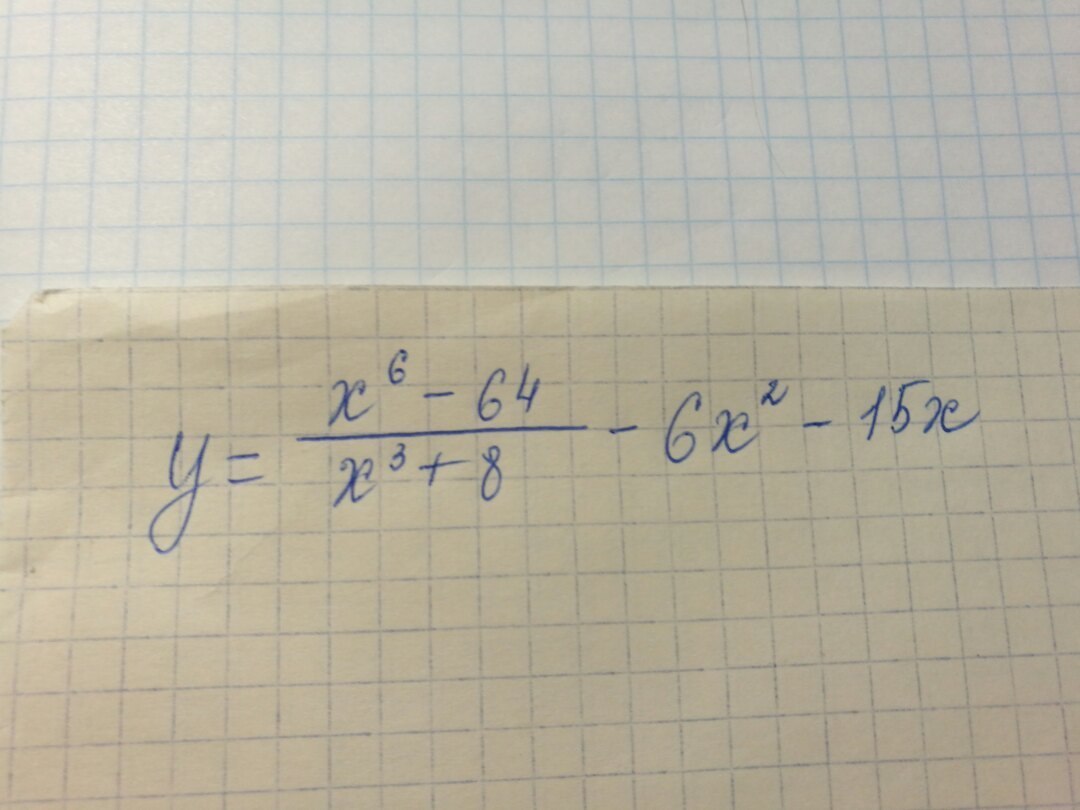 y = \frac{x^6 - 64}{x^3 + 8} - 6x^2 - 15x